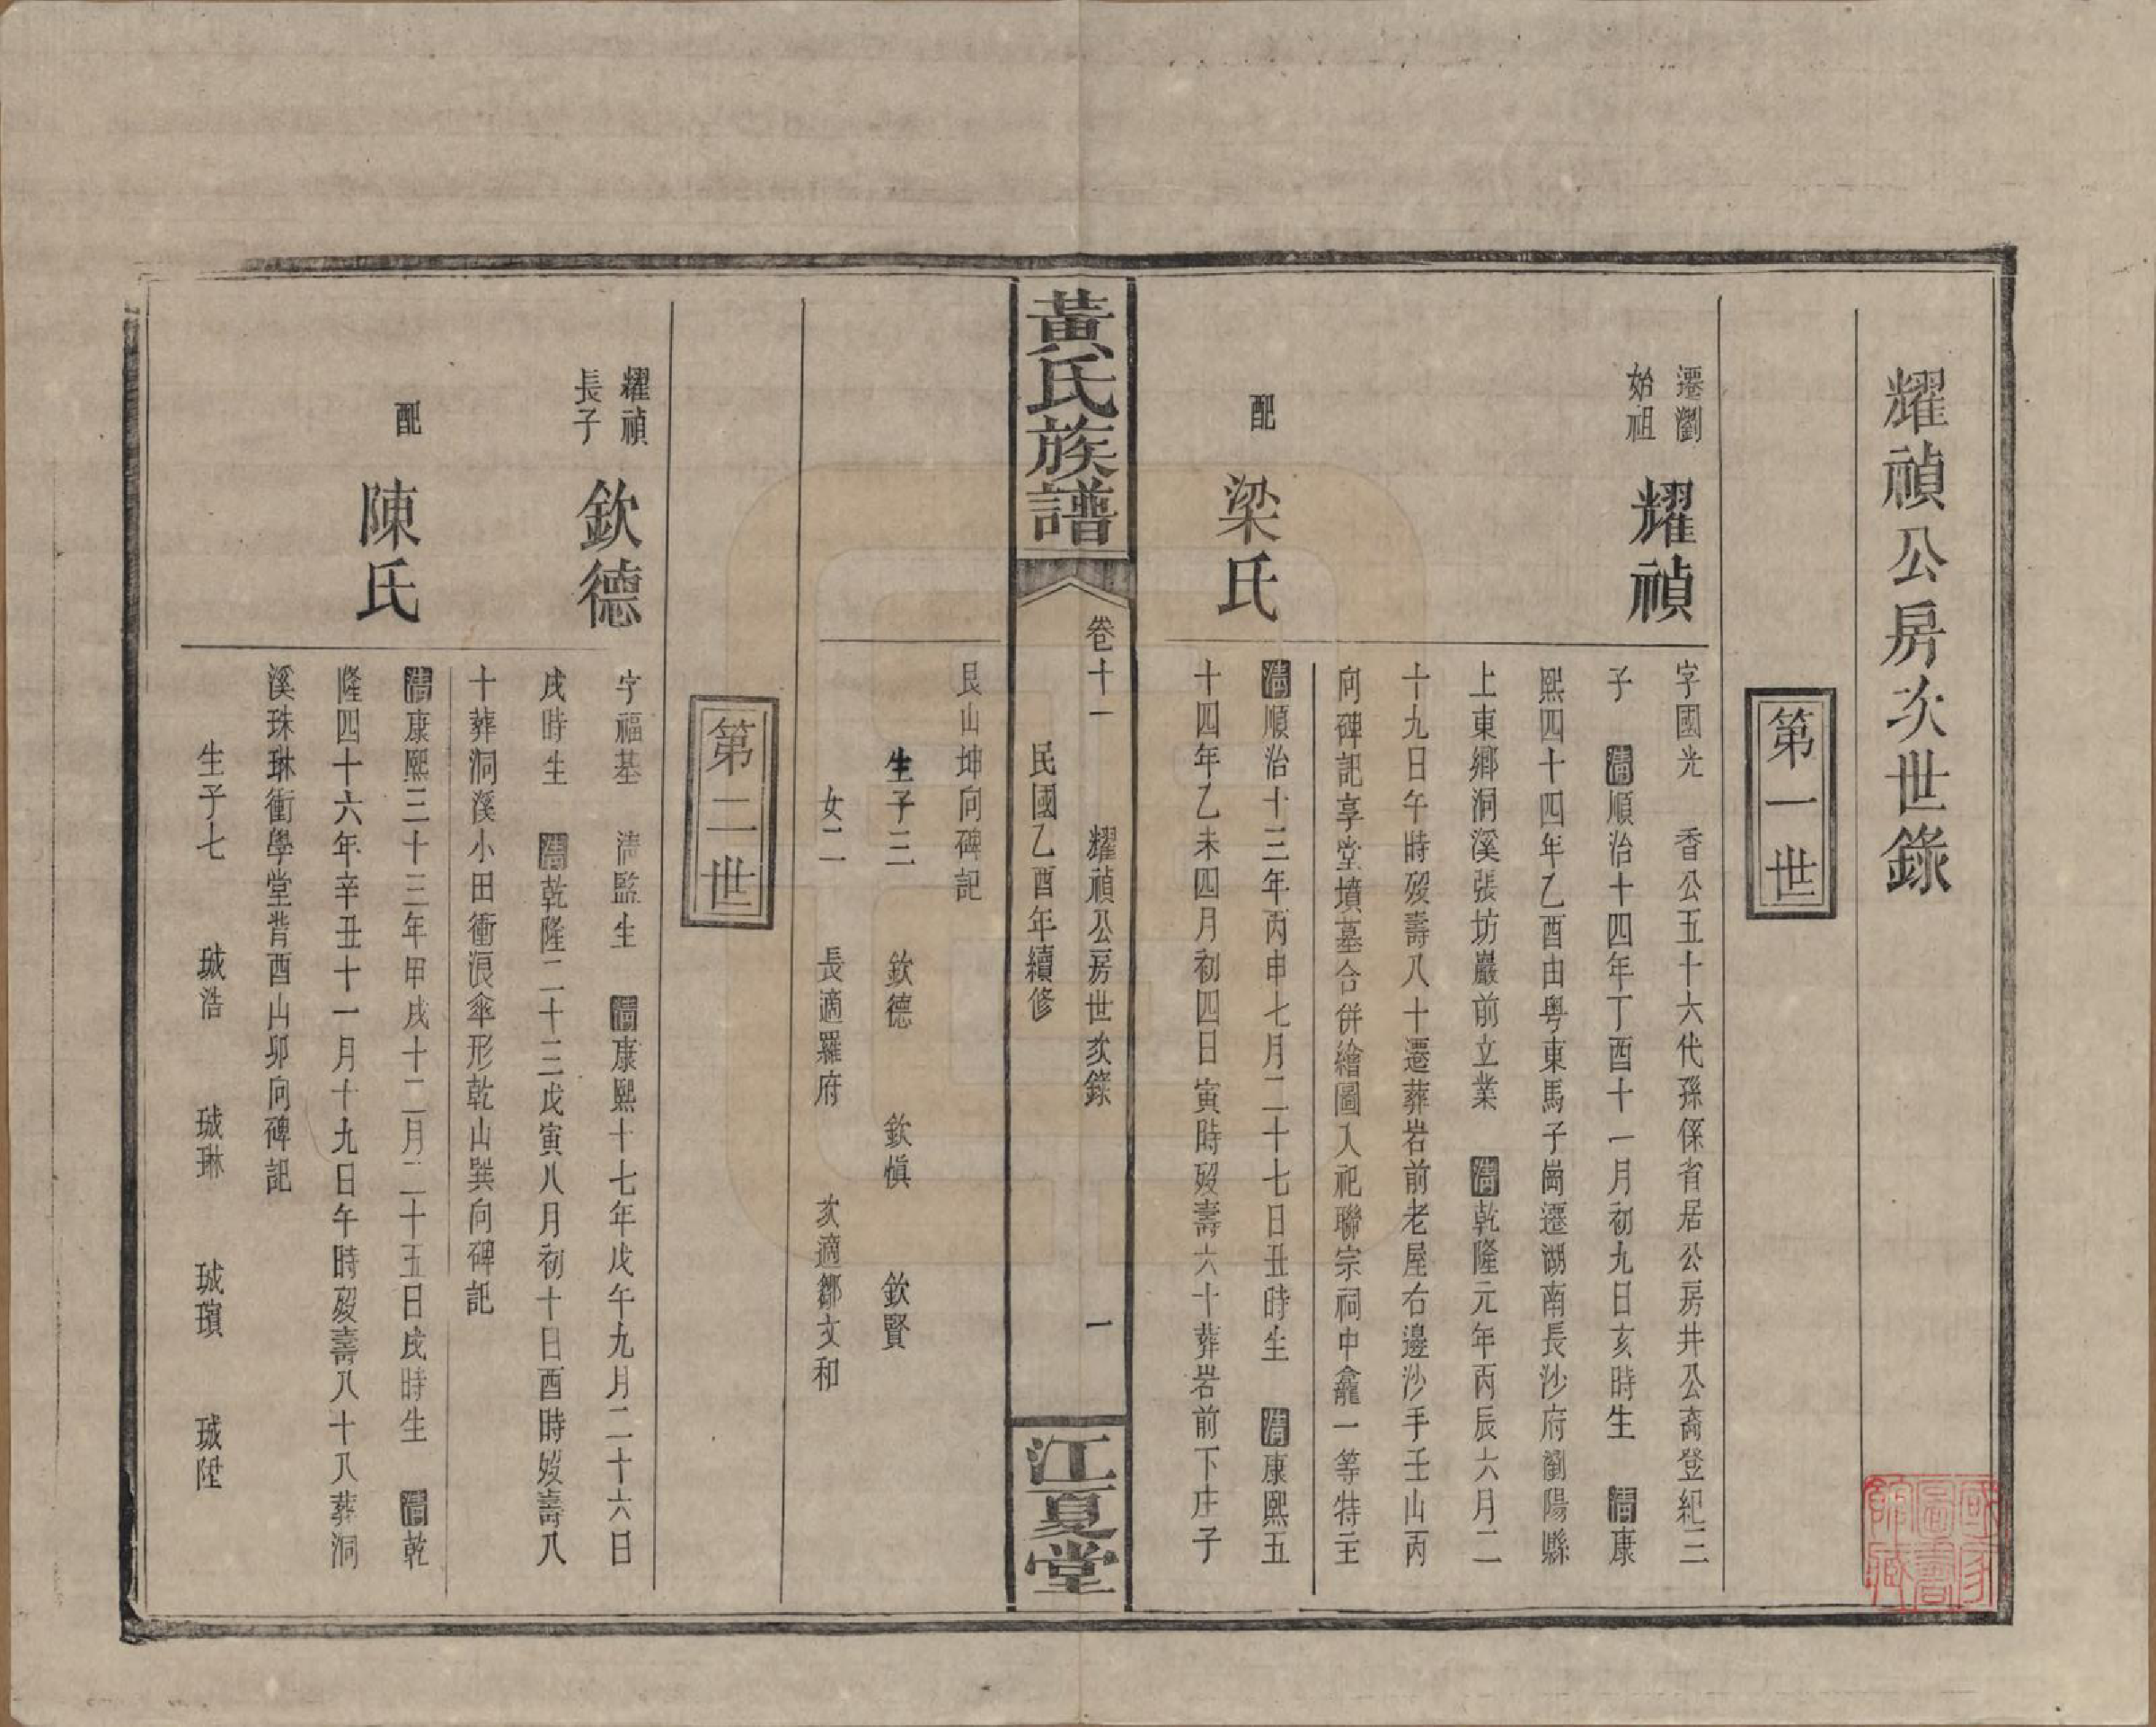 耀禎公房次世錄
第一世
遷瀏
始祖
耀禎
字國光　香公五十六代孫係省居公房井公裔登紀三
子　清順治十四年丁酉十一月初九日亥時生　清康
熙四十四年乙酉由粵東馬子崗遷湖南長沙府瀏陽縣
上東鄉洞溪張坊巖前立業　清乾隆元年丙辰六月二
十九日午時歿壽八十遷葬岩前老屋右邊沙手壬山丙
向碑記享堂墳墓合併繪圖入祀聯宗祠中龕一等特主
配
梁氏
清順治十三年丙申七月二十七日丑時生　清康熙五
十四年乙未四月初四日寅時歿壽六十葬岩前下庄子
黃氏族譜
卷十一　耀禎公房世次錄　一
民國乙酉年續修
江夏堂
艮山坤向碑記
生子三　欽德　欽慎　欽賢
女二　長適羅府　次適鄒文和
第二世
耀禎
長子
欽德
字福基　清監生　清康熙十七年戊午九月二十六日
戌時生　清乾隆二十三戊寅八月初十日酉時歿壽八
十葬洞溪小田衝涼傘形乾山巽向碑記
配
陳氏
清康熙三十三年甲戌十二月二十五日戌時生　清乾
隆四十六年辛丑十一月十九日午時歿壽八十八葬洞
溪珠琳衝學堂背酉山卯向碑記
生子七　珹浩　珹琳　珹璸　珹陞
國家
圖書
館藏